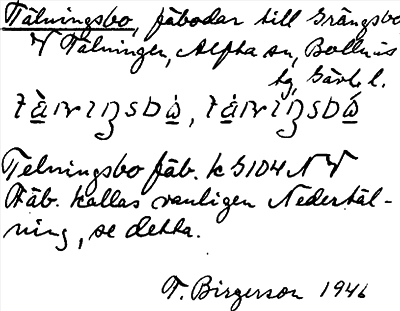 Tälningsbo, fäbodar till Grängsbo
V Tälningen, Alfta sn, Bollnäs
tg, Gävle l.
Telningsbo fäb. k G104 N V
Fäb. kallas vanligen Nedertäl-
ning, se detta.
T. Birgerson 1946